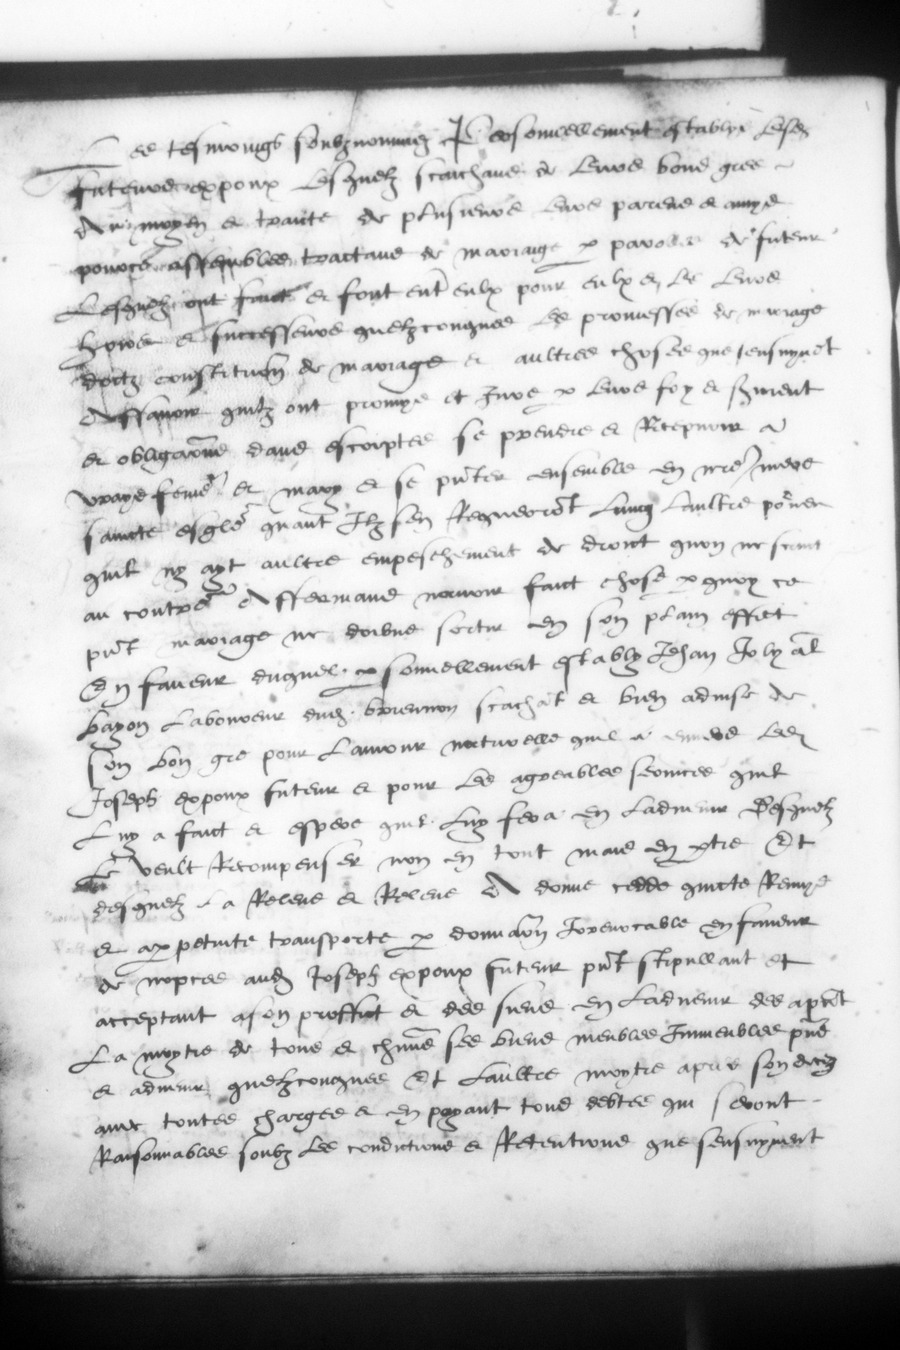 Les tesmoings soubznommez Personnellement establys lesd
futeurs expoux lesquelz scachans de leurs bons grez
du moyen et traicte de plusieurs leurs parens et amys
pource assemblez tractans de mariaige p parolles de futeur
Lesquelz ont faict et font entr eulx pour eulx et les leurs
hoirs et successeurs quelzconques les promesses de mariage
dotz constitution de mariage et aultres choses que sensuyvent
Assavoir quilz ont promys et jure p leurs foy et serment
et obligations dans escriptes se prendre et Recepvoir a
vraye feme et mary et se pnter ensemble en nre mere
saincte esglise quant Ilz sen Requerront lung laultre pourveu
quil ny ayt aultre empeschement de droict quon ne scait
au contre Affermans navoir faict chose p quoy ce
pnt mariage ne doibve sortir en son plain effect
En faveur duquel personnellement estably Jehan Joly al
bayon laboureur dud scachat et bien advise de
son bon gre pour lamour naturelle quil a envers led
Joseph expoux futeur et pour les agreables services quil
Luy a faict et espere quil luy fera en ladvenir Desquelz
Le veult Recompenser non en tout mais en ptie Et
desquelz la Releve et Releve A donne cedde quicte Remys
et a perpetuite transporte p donnation Irrevocable en faveur
de nopces aud Joseph expoux futeur pnt stipullant et
acceptant a son proffict et des siens en ladvenir des apnt
La moytie de tous et chuns ses biens meubles Immeubles pns
et advenir quelzconques Et laultre moytie apres son deces
avec toutes charges et en payant tous debtes qui seront
Raisonnables soubz les conditions et Retentions que sensuyvent